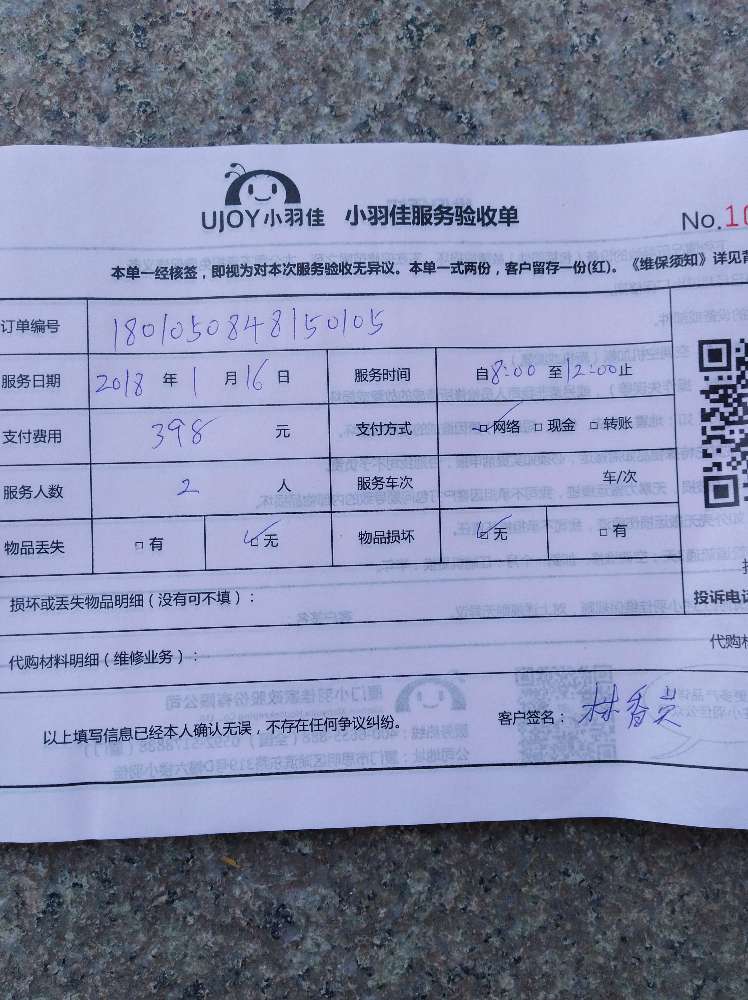 UJOY小羽佳 小羽佳服务验收单
No.10
本单一经核签，即视为对本次服务验收无异议。本单一式两份，客户留存一份(红)。《维保须知》详见背
订单编号 1801050848150105
服务日期 2018 年 1 月 16 日 服务时间 自8:00 至12:00止
支付费用 398 元 支付方式 □网络 □现金 □转账
服务人数 2 人 服务车次 车/次
物品丢失 □有 □无 物品损坏 □无 □有
损坏或丢失物品明细（没有可不填）：
投诉电话
代购材料明细（维修业务）：
代购材
以上填写信息已经本人确认无误，不存在任何争议纠纷。 客户签名：林香